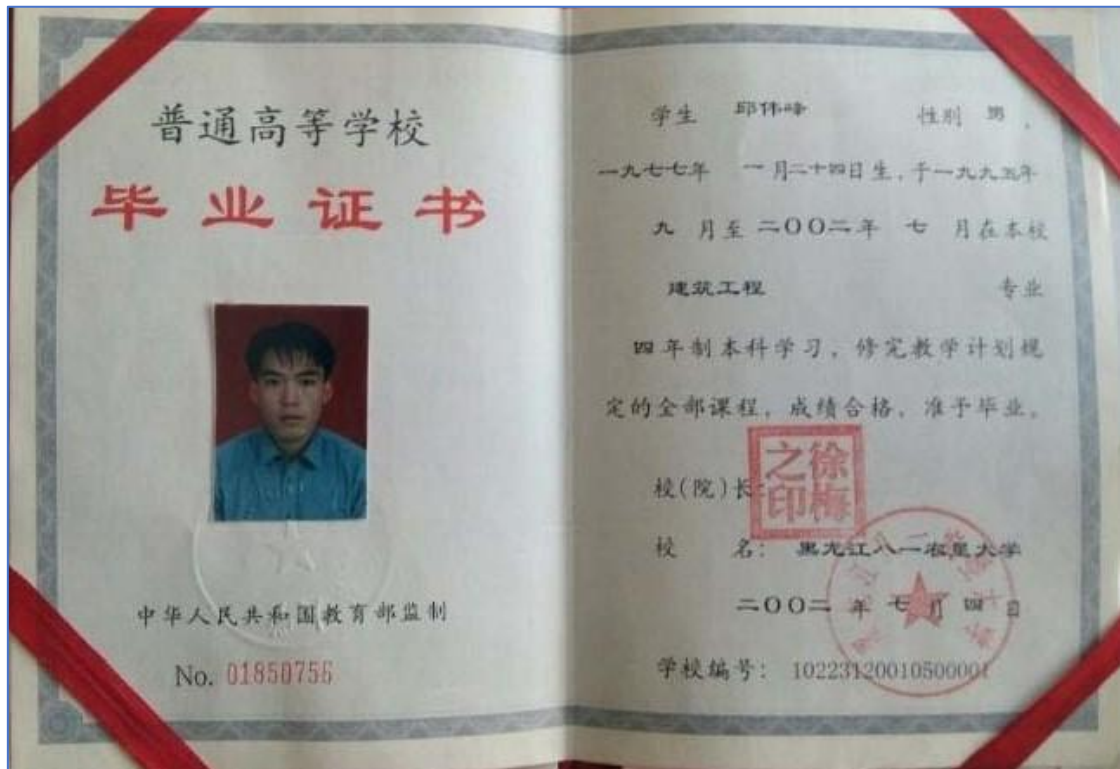 普通高等学校
毕业证书
中华人民共和国教育部监制
No. 01850756
学生 邱伟峰 性别 男，
一九七七年 一月二十四日生，于一九九五年
九 月至 二〇〇二年 七 月在本校
建筑工程 专业
四年制本科学习，修完教学计划规
定的全部课程，成绩合格，准予毕业。
校(院)长：
徐梅之印
校 名： 黑龙江八一农垦大学
二〇〇二 年 七 月 四 日
学校编号： 102231200105000001